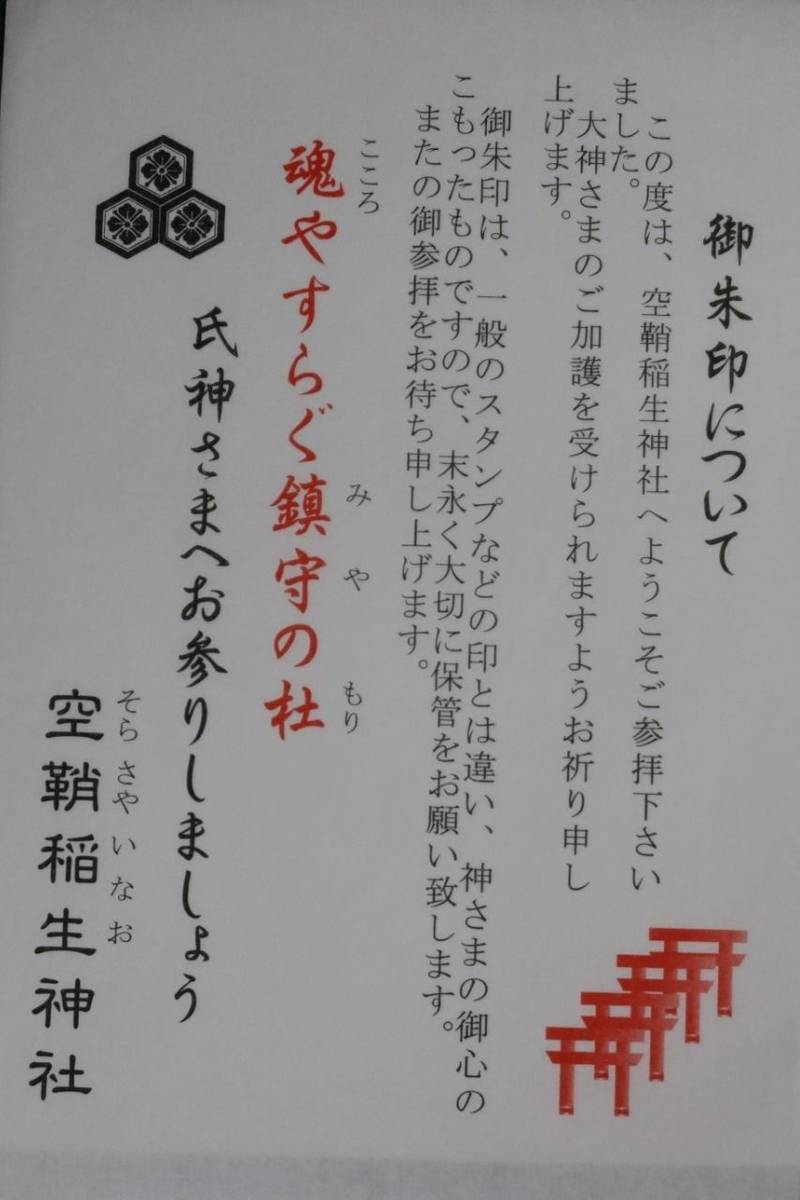 御朱印について
この度は、空鞘稲生神社へようこそご参拝下さい
ました。
大神さまのご加護を受けられますようお祈り申し
上げます。
御朱印は、一般のスタンプなどの印とは違い、神さまの御心の
こもったものですので、末永く大切に保管をお願い致します。
またの御参拝をお待ち申し上げます。
こころ みや もり
魂やすらぐ鎮守の杜
氏神さまへお参りしましょう
そらさやいなお
空鞘稲生神社